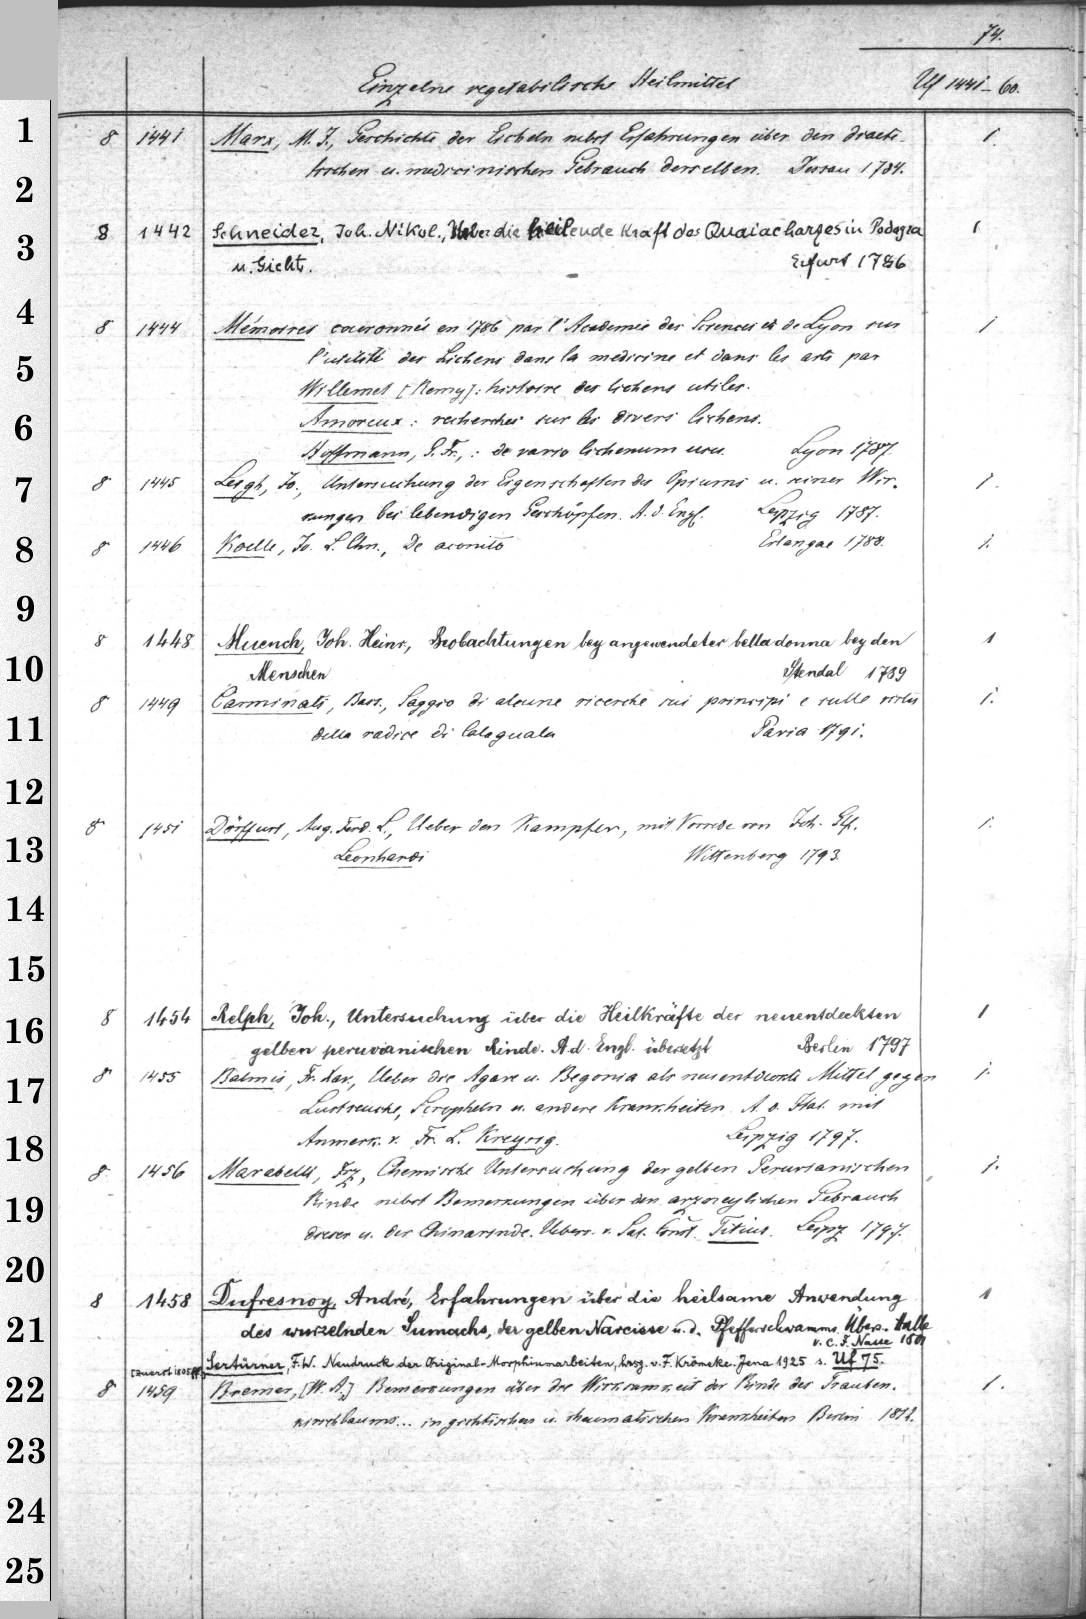 74.
Einzelne vegetabilische Heilmittel Uf 1441-60.
1
8 1441 Marx, M. J., Geschichte der Eicheln nebst Erfahrungen über den diaete- 1.
tischen u. medicinischen Gebrauch derselben. Dessau 1784.
2
3
8 1442 Schneider, Joh. Nikol., Ueber die heilende Kraft des Quaiacharzes in Podagra 1
u. Gicht. Erfurt 1786
4
8 1444 Mémoires couronnés en 1786 par l'Academie des Sciences et de Lyon sur 1
5
l'utilité des Lichens dans la medicine et dans les arts par
Willemet [Remy]: histoire des lichens utiles.
6
Amoreux: recherches sur les divers lichens.
Hoffmann, G. Fr.,: de vario lichenum usu. Lyon 1787.
7
8 1445 Leigh, Jo., Untersuchung der Eigenschaften des Opiums u. seiner Wir- 1.
kungen bei lebendigen Geschöpfen. A. d. Engl. Leipzig 1787.
8
8 1446 Koelle, Jo. L. Chn., De aconito Erlangae 1788. 1.
9
8 1448 Muench, Joh. Heinr, Beobachtungen bey angewendeter belladonna bey den 1
10
Menschen Stendal 1789
8 1449 Carminati, Bass., Saggio di alcune ricerche sui principi e sulle virtù 1.
11
della radice di Calaguala Pavia 1791.
12
8 1451 Dörffurt, Aug. Ferd. L., Ueber den Kampfer, mit Vorrede von Joh. Glf. 1.
13
Leonhardi Wittenberg 1793.
14
15
16
8 1454 Relph, Joh., Untersuchung über die Heilkräfte der neuentdeckten 1
gelben peruvianischen Rinde. A. d. Engl. übersetzt Berlen 1797
17
8 1455 Balmis, Fr. Xav., Ueber die Agave u. Begonia als neuentdeckte Mittel gegen 1.
Lustseuche, Scropheln u. andere Krankheiten. A. d. Ital. mit
18
Anmerk. v. Fr. L. Kreysig. Leipzig 1797.
8 1456 Marabelli, Frz, Chemische Untersuchung der gelben Peruvianischen 1.
19
Rinde nebst Bemerkungen über den arzneylichen Gebrauch
dieser u. der Chinarinde. Uebers. v. Sal. Const. Titius. Leipz 1797.
20
8 1458 Dufresnoy, André, Erfahrungen über die heilsame Anwendung 1
21
des wurzelnden Sumachs, der gelben Narcisse u. d. Pfefferschwamms. Übers. v. C. F. Nasse Halle 1801
Sertürner, F. W. Neudruck der Original-Morphinmarbeiten, hrsg. v. F. Krömeke. Jena 1925 s. Uf 75.
22
8 1459 Bremer, [W. A.] Bemerkungen über die Wirksamkeit der Rinde des Trauben- 1.
kirschbaums... in gichtischen u. rheumatischen Krankheiten Berlin 1812.
23
24
25